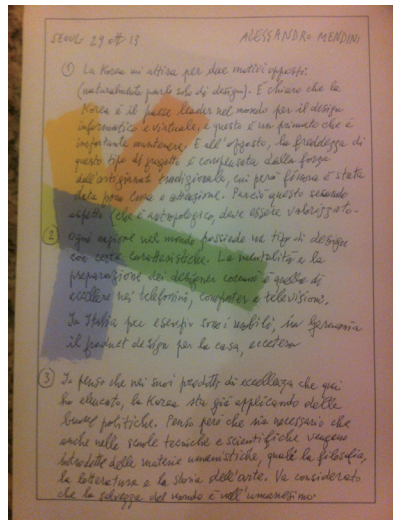 SEOUL 29 ott 13 ALESSANDRO MENDINI
① La Korea mi attira per due motivi opposti
(naturalmente parlo solo di design). È chiaro che la
Korea è il paese leader nel mondo per il design
informatico e virtuale, e questo è un primato che è
importante mantenere. E all'opposto, la freddezza di
questo tipo di progetto è compensata dalla forza
dell'artigianato tradizionale, cui però finora è stata
data poca cura e attenzione. Perciò questo secondo
aspetto (che è antropologico) deve essere valorizzato.
② ogni regione nel mondo possiede un tipo di design
con certe caratteristiche. La mentalità e la
preparazione dei designer coreani è quella di
eccellere nei telefonini, computer e televisioni.
In Italia per esempio sono i mobili, in Germania
il product design per la casa, eccetera
③ Io penso che nei suoi prodotti di eccellenza che qui
ho elencato, la Korea sta già applicando delle
buone politiche. Penso però che sia necessario che
anche nelle scuole tecniche e scientifiche vengano
introdotte delle materie umanistiche, quali la filosofia,
la letteratura e la storia dell'arte. Va considerato
che la salvezza del mondo è nell'umanesimo.